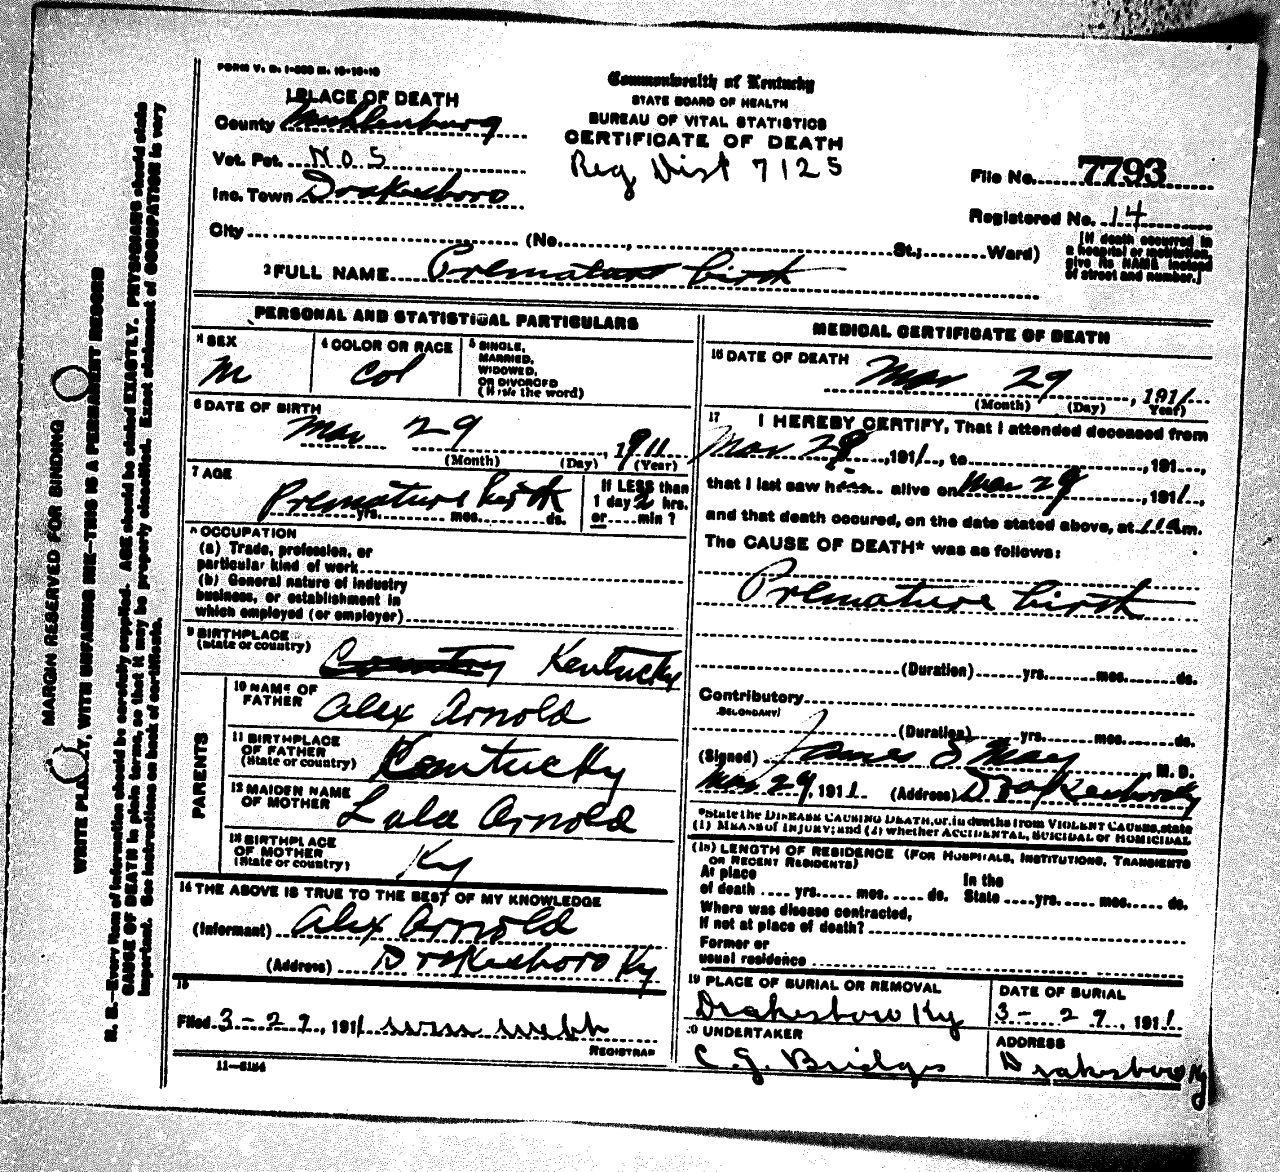 FORM V. S. 1-
Commonwealth of Kentucky
STATE BOARD OF HEALTH
BUREAU OF VITAL STATISTICS
CERTIFICATE OF DEATH
Reg Dist 7125
1 PLACE OF DEATH
County Muhlenburg
Vot. Pct. No 5
Inc. Town Drakesboro
City (No. , St.; Ward)
File No. 7793
Registered No. 14
[If death occurred in
a hospital or institution,
give its NAME instead
of street and number.]
2 FULL NAME Premature birth
PERSONAL AND STATISTICAL PARTICULARS
3 SEX
M
4 COLOR OR RACE
Col
5 SINGLE,
MARRIED,
WIDOWED,
OR DIVORCED
(Write the word)
6 DATE OF BIRTH
Mar 29, 1911
(Month) (Day) (Year)
7 AGE
Premature birth
yrs. mos. ds.
If LESS than
1 day 2 hrs.
or min?
8 OCCUPATION
(a) Trade, profession, or
particular kind of work
(b) General nature of industry
business, or establishment in
which employed (or employer)
9 BIRTHPLACE
(State or country)
Country Kentucky
PARENTS
10 NAME OF
FATHER
Alex Arnold
11 BIRTHPLACE
OF FATHER
(State or country)
Kentucky
12 MAIDEN NAME
OF MOTHER
Lula Arnold
13 BIRTHPLACE
OF MOTHER
(State or country)
Ky
14 THE ABOVE IS TRUE TO THE BEST OF MY KNOWLEDGE
(Informant) Alex Arnold
(Address) Drakesboro Ky
15
Filed 3-29, 1911
REGISTRAR
11-6184
MEDICAL CERTIFICATE OF DEATH
16 DATE OF DEATH
Mar 29, 1911
(Month) (Day) Year)
17 I HEREBY CERTIFY, That I attended deceased from
Mar 29, 1911, to , 191 ,
that I last saw h alive on Mar 29, 1911,
and that death occured, on the date stated above, at 11 a m.
The CAUSE OF DEATH* was as follows:
Premature birth
(Duration) yrs. mos. ds.
Contributory
(SECONDARY)
(Duration) yrs. mos. ds.
(Signed) James S May M. D.
Mar 29, 1911 (Address) Drakesboro Ky
*State the DISEASE CAUSING DEATH, or, in deaths from VIOLENT CAUSES, state
(1) MEANS of INJURY; and (2) whether ACCIDENTAL, SUICIDAL or HOMICIDAL
(18) LENGTH OF RESIDENCE (FOR HOSPITALS, INSTITUTIONS, TRANSIENTS
OR RECENT RESIDENTS)
At place
of death yrs. mos. ds.
In the
State yrs. mos. ds.
Where was disease contracted,
If not at place of death?
Former or
usual residence
19 PLACE OF BURIAL OR REMOVAL
Drakesboro Ky
DATE OF BURIAL
3-29, 1911
20 UNDERTAKER
C. G. Bridges
ADDRESS
Drakesboro Ky
MARGIN RESERVED FOR BINDING
WRITE PLAINLY, WITH UNFADING INK—THIS IS A PERMANENT RECORD
N. B.—Every item of information should be carefully supplied. AGE should be stated EXACTLY. PHYSICIANS should state
CAUSE OF DEATH in plain terms, so that it may be properly classified. Exact statement of OCCUPATION is very
important. See instructions on back of certificate.